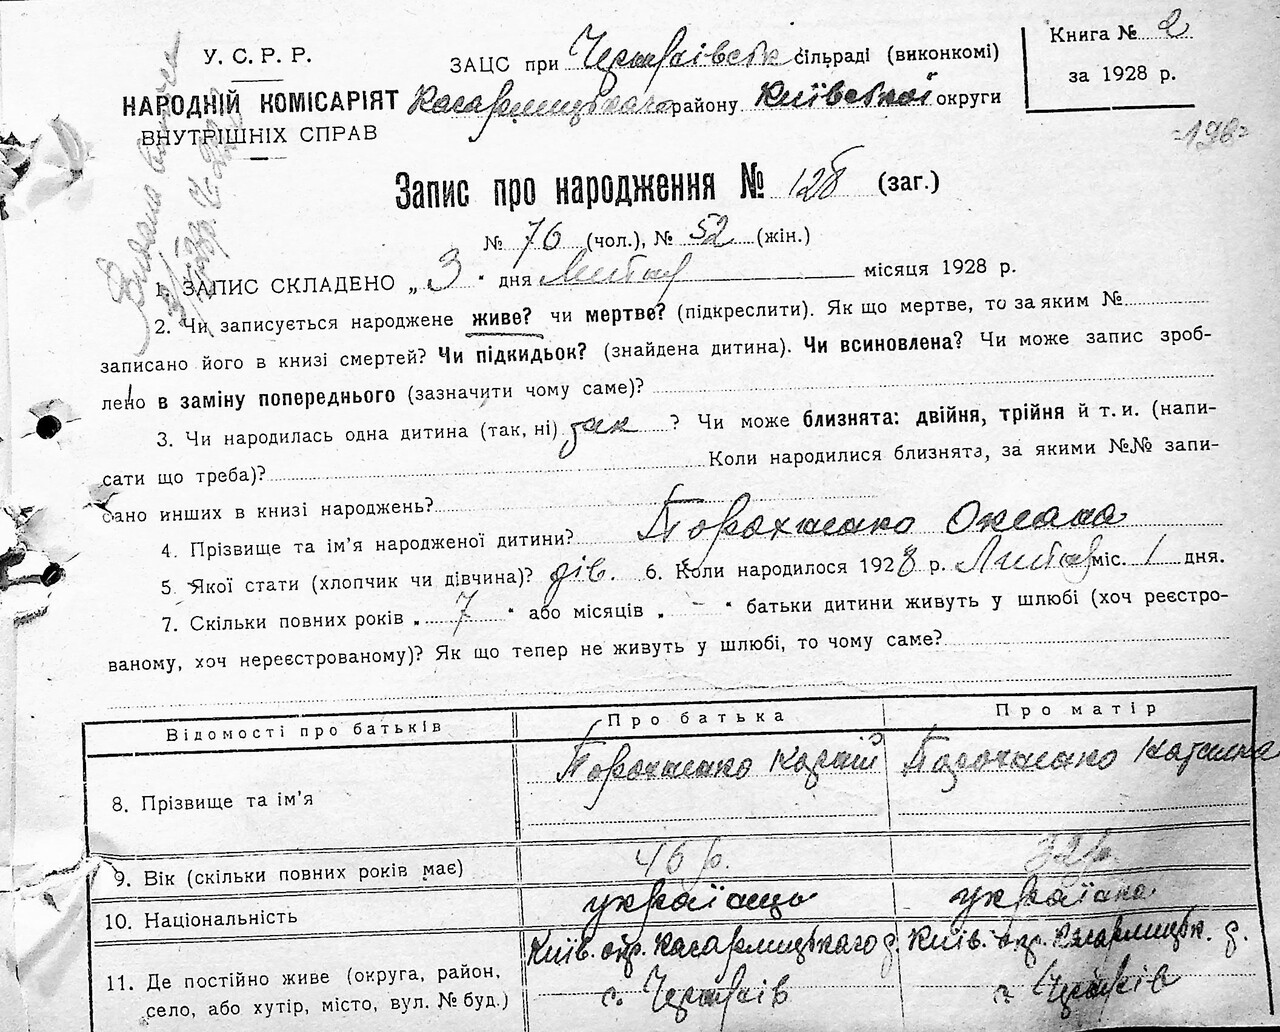 У. С. Р. Р.
НАРОДНІЙ КОМІСАРІЯТ
ВНУТРІШНІХ СПРАВ
ЗАЦС при сільраді (виконкомі)
Кагарлицького району Київської округи
Книга № 2
за 1928 р.
=196=
Запис про народження № 128 (заг.)
№ 76 (чол.), № 52 (жін.)
1. ЗАПИС СКЛАДЕНО „ 3 " дня Липня місяця 1928 р.
2. Чи записується народжене живе? чи мертве? (підкреслити). Як що мертве, то за яким №
записано його в книзі смертей? Чи підкидьок? (знайдена дитина). Чи всиновлена? Чи може запис зроб-
лено в заміну попереднього (зазначити чому саме)?
3. Чи народилась одна дитина (так, ні) так ? Чи може близнята: двійня, трійня й т. и. (напи-
сати що треба)? Коли народилися близнята, за якими №№ запи-
сано инших в книзі народжень?
4. Прізвище та ім'я народженої дитини? Порохненко Оксана
5. Якої стати (хлопчик чи дівчина)? дів. 6. Коли народилося 1928 р. Липня міс. 1 дня.
7. Скільки повних років „ 7 " або місяців „ - " батьки дитини живуть у шлюбі (хоч реєстро-
ваному, хоч нереєстрованому)? Як що тепер не живуть у шлюбі, то чому саме?
Відомості про батьків Про батька Про матір
8. Прізвище та ім'я Порохненко Корній Порохненко Катерина
9. Вік (скільки повних років має) 46 р. 32 р.
10. Національність українець українка
11. Де постійно живе (округа, район, Київ. окр. Кагарлицького р. Київ. окр. Кагарлицьк. р.
село, або хутір, місто, вул. № буд.) с. с.